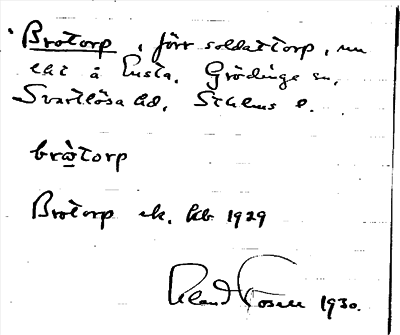 Brotorp, förr soldattorp, nu
lht å Ensta. Grödinge sn,
Svartlösa hd, Sthlms l.
bròtorp
Brotorp ek. kb 1929
Roland Otterbjörk 1930.